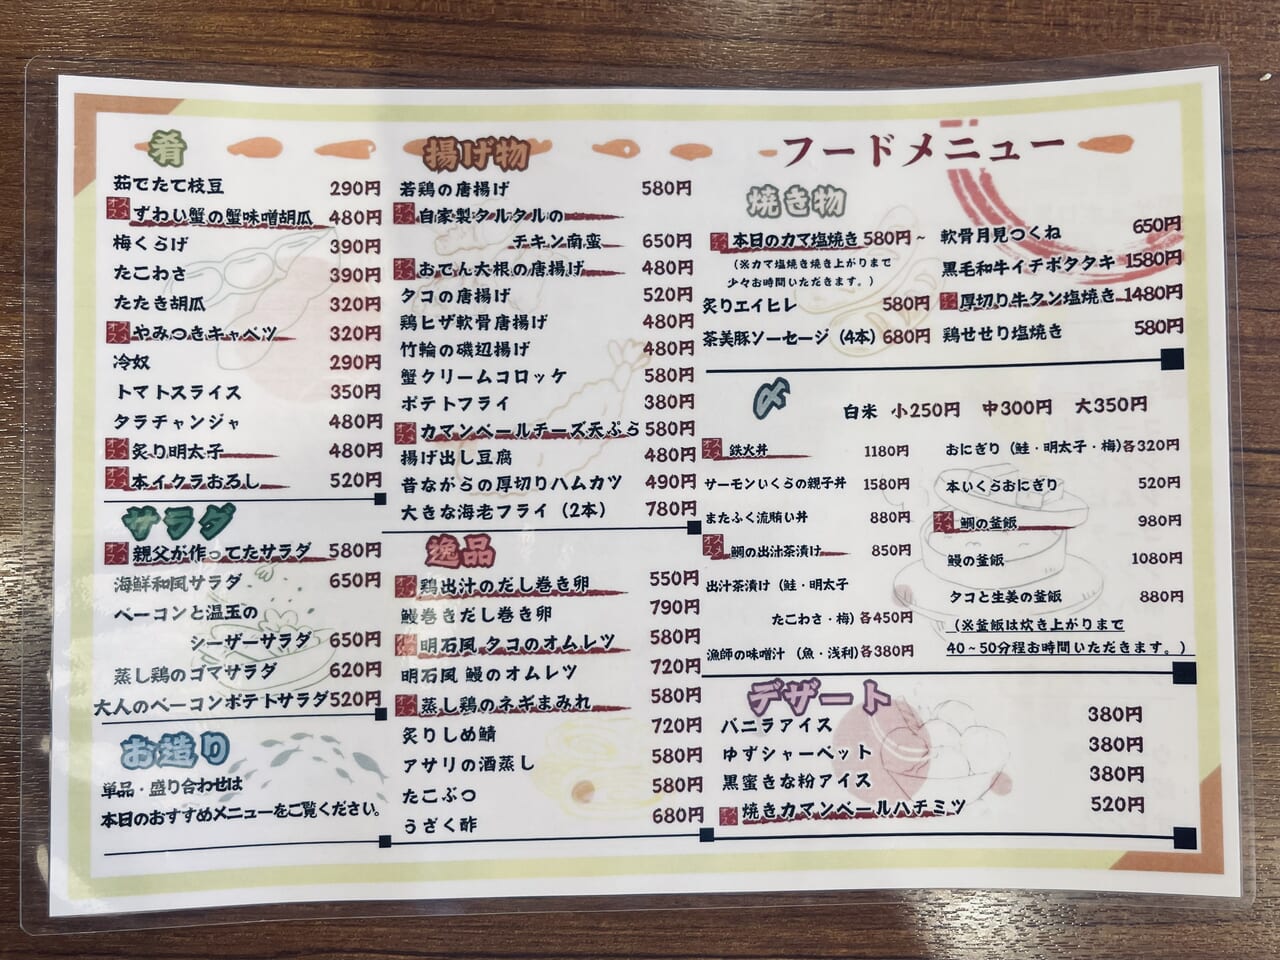 フードメニュー
肴
茹でたて枝豆 290円
オススメ ずわい蟹の蟹味噌胡瓜 480円
梅くらげ 390円
たこわさ 390円
たたき胡瓜 320円
オススメ やみつきキャベツ 320円
冷奴 290円
トマトスライス 350円
タラチャンジャ 480円
オススメ 炙り明太子 480円
オススメ 本イクラおろし 520円
サラダ
オススメ 親父が作ってたサラダ 580円
海鮮和風サラダ 650円
ベーコンと温玉の
シーザーサラダ 650円
蒸し鶏のゴマサラダ 620円
大人のベーコンポテトサラダ 520円
お造り
単品・盛り合わせは
本日のおすすめメニューをご覧ください。
揚げ物
若鶏の唐揚げ 580円
オススメ 自家製タルタルの
チキン南蛮 650円
オススメ おでん大根の唐揚げ 480円
タコの唐揚げ 520円
鶏ヒザ軟骨唐揚げ 480円
竹輪の磯辺揚げ 480円
蟹クリームコロッケ 580円
ポテトフライ 380円
オススメ カマンベールチーズ天ぷら 580円
揚げ出し豆腐 480円
昔ながらの厚切りハムカツ 490円
大きな海老フライ（2本） 780円
逸品
オススメ 鶏出汁のだし巻き卵 550円
鰻巻きだし巻き卵 790円
オススメ 明石風 タコのオムレツ 580円
明石風 鰻のオムレツ 720円
オススメ 蒸し鶏のネギまみれ 580円
炙りしめ鯖 720円
アサリの酒蒸し 580円
たこぶつ 580円
うざく酢 680円
焼き物
オススメ 本日のカマ塩焼き 580円～
（※カマ塩焼き焼き上がりまで
少々お時間いただきます。）
炙りエイヒレ 580円
茶美豚ソーセージ（4本） 680円
軟骨月見つくね 650円
黒毛和牛イチボタタキ 1580円
オススメ 厚切り牛タン塩焼き 1480円
鶏せせり塩焼き 580円
〆
白米 小250円 中300円 大350円
オススメ 鉄火丼 1180円
サーモンいくらの親子丼 1580円
またふく流賄い丼 880円
オススメ 鯛の出汁茶漬け 850円
出汁茶漬け（鮭・明太子
たこわさ・梅）各450円
漁師の味噌汁（魚・浅利）各380円
おにぎり（鮭・明太子・梅）各320円
本いくらおにぎり 520円
オススメ 鯛の釜飯 980円
鰻の釜飯 1080円
タコと生姜の釜飯 880円
（※釜飯は炊き上がりまで
40～50分程お時間いただきます。）
デザート
バニラアイス 380円
ゆずシャーベット 380円
黒蜜きな粉アイス 380円
オススメ 焼きカマンベールハチミツ 520円